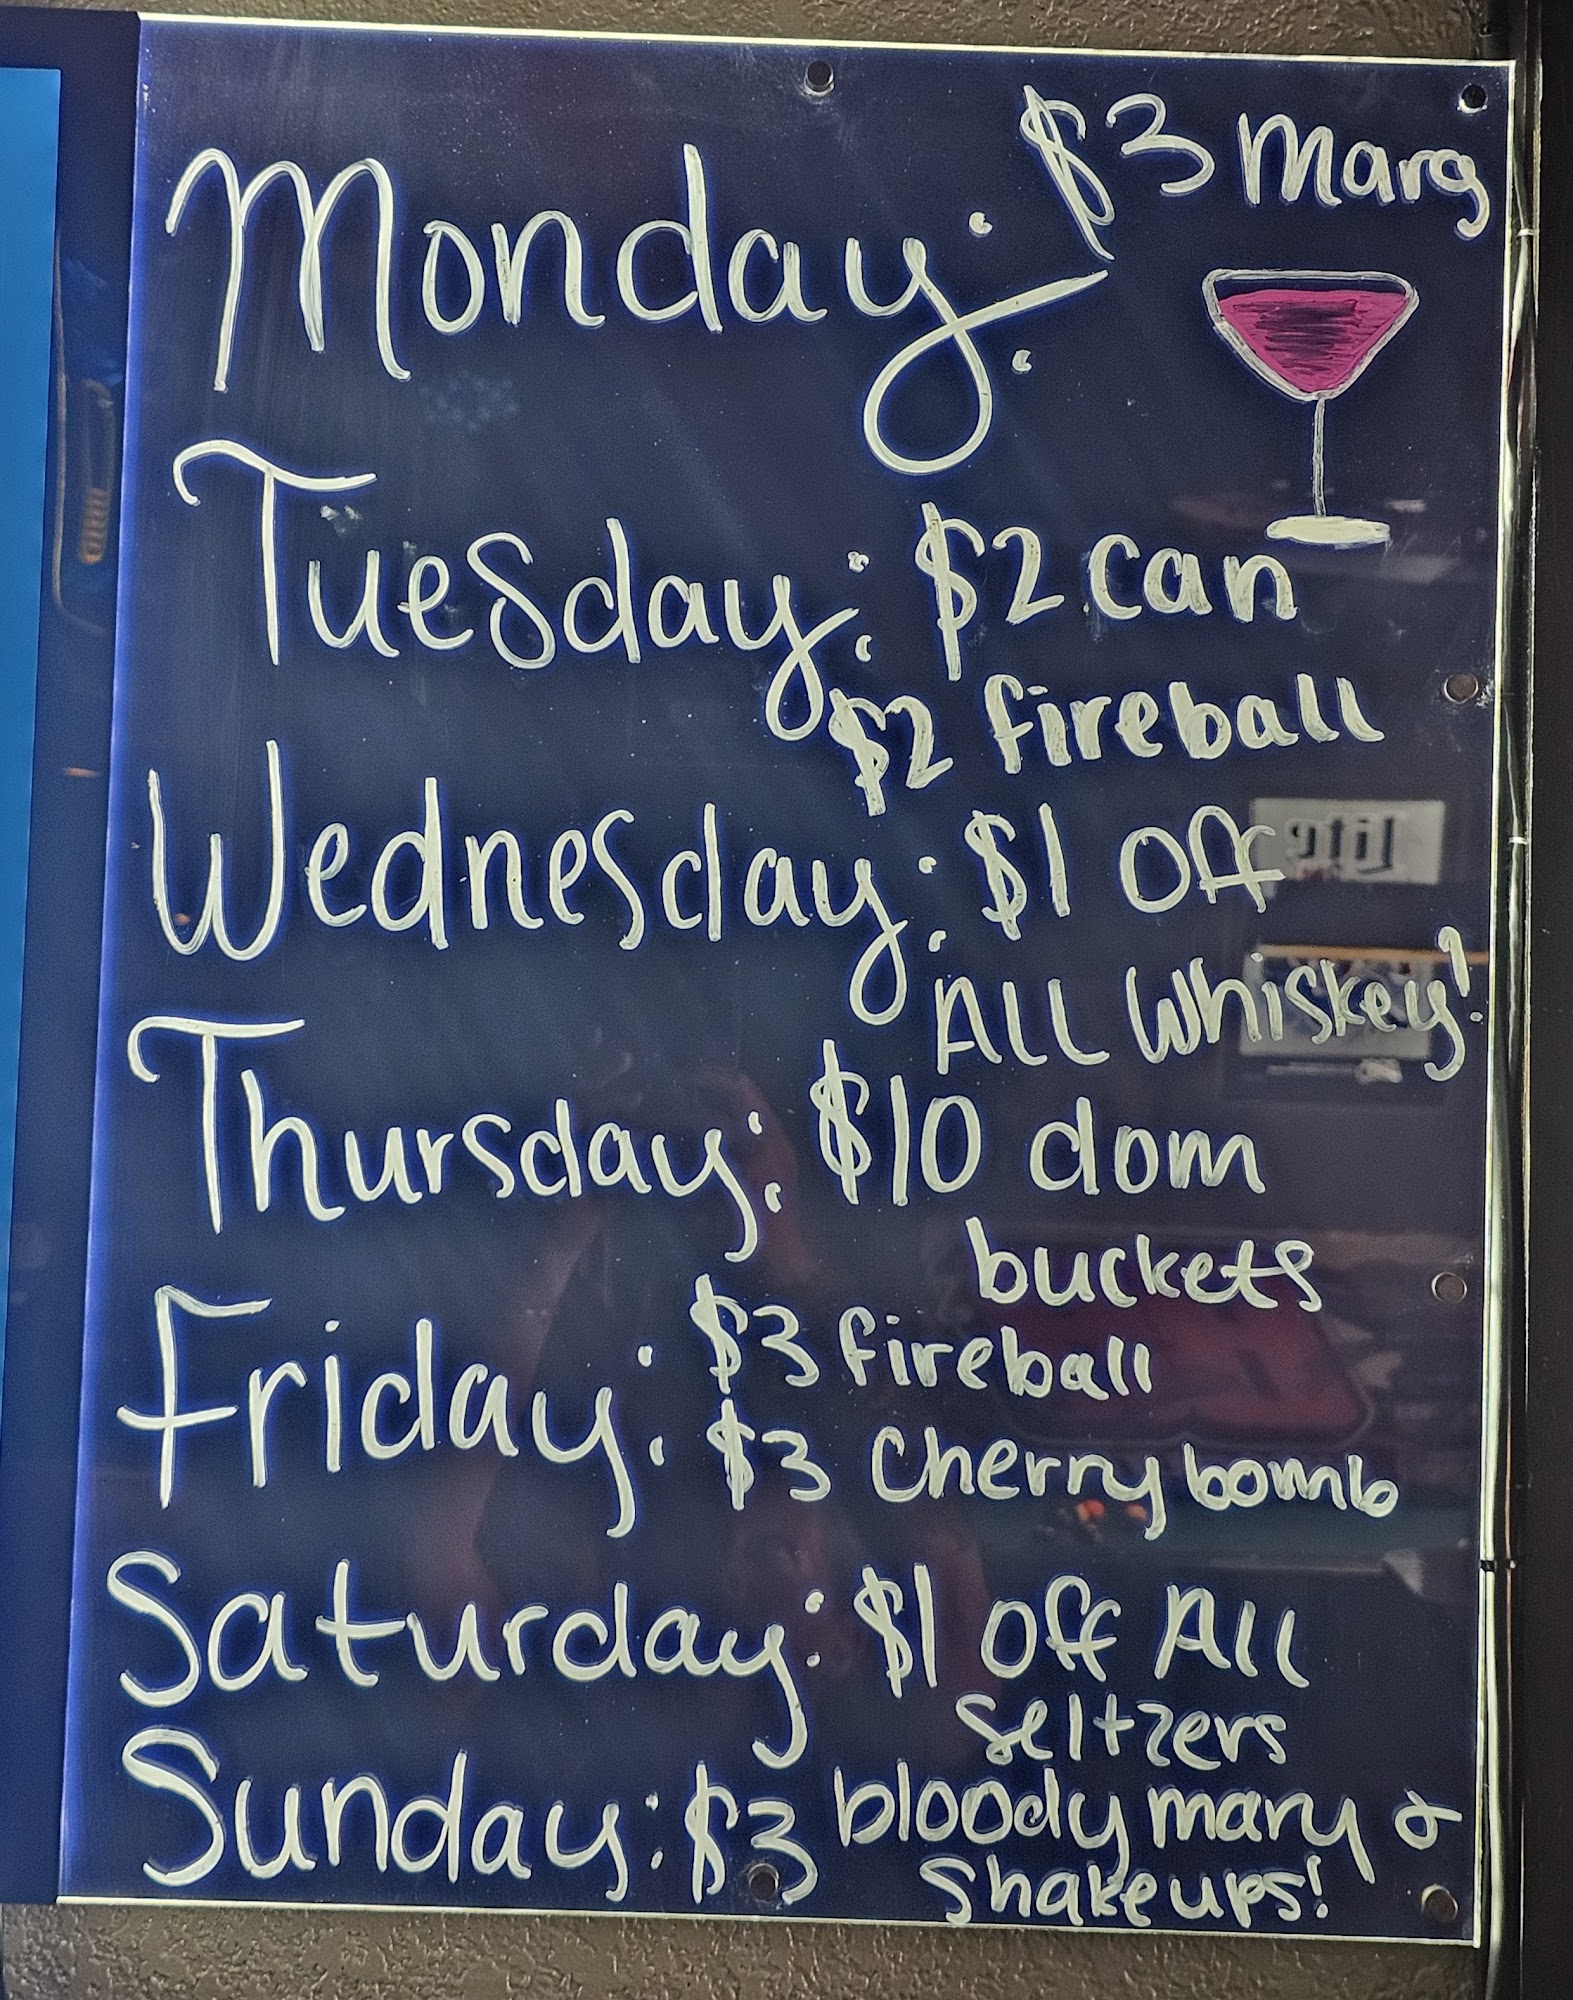 Monday: $3 Marg
Tuesday: $2 can
$2 fireball
Wednesday: $1 Off
All Whiskey!
Thursday: $10 dom
buckets
Friday: $3 fireball
$3 Cherry bomb
Saturday: $1 Off All
Seltzers
Sunday: $3 bloody mary &
Shakeups!
Lite